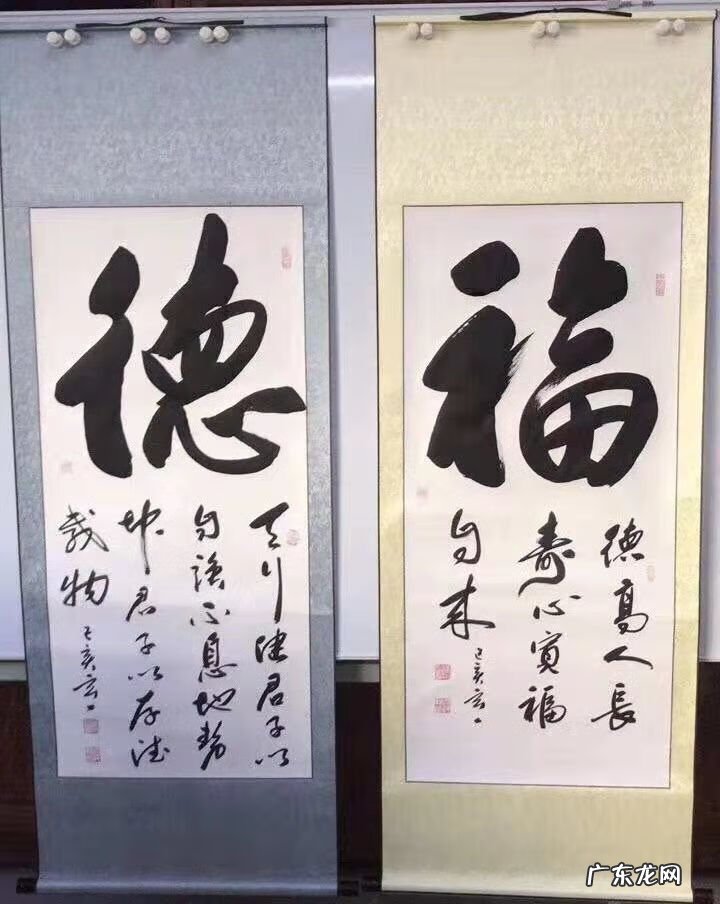 德
天行健君子以
自強不息地势
坤君子以厚德
载物
己亥
福
德高人長
寿心寬福
自来
己亥
广东龙网